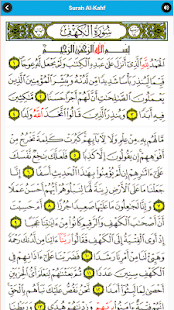 Surah Al-Kahf
سُورَةُ الْكَهْفِ
بِسْمِ اللَّهِ الرَّحْمَٰنِ الرَّحِيمِ
الْحَمْدُ لِلَّهِ الَّذِي أَنزَلَ عَلَىٰ عَبْدِهِ الْكِتَٰبَ وَلَمْ يَجْعَل لَّهُ عِوَجَا
١ قَيِّمًا لِّيُنذِرَ بَأْسًا شَدِيدًا مِّن لَّدُنْهُ وَيُبَشِّرَ الْمُؤْمِنِينَ الَّذِينَ
يَعْمَلُونَ الصَّٰلِحَٰتِ أَنَّ لَهُمْ أَجْرًا حَسَنًا ٢ مَّٰكِثِينَ فِيهِ
أَبَدًا ٣ وَيُنذِرَ الَّذِينَ قَالُوا اتَّخَذَ اللَّهُ وَلَدًا ٤
مَّا لَهُم بِهِ مِنْ عِلْمٍ وَلَا لِءَابَائِهِمْ كَبُرَتْ كَلِمَةً تَخْرُجُ مِنْ
أَفْوَٰهِهِمْ إِن يَقُولُونَ إِلَّا كَذِبًا ٥ فَلَعَلَّكَ بَٰخِعٌ
نَّفْسَكَ عَلَىٰ ءَاثَٰرِهِمْ إِن لَّمْ يُؤْمِنُوا بِهَٰذَا الْحَدِيثِ أَسَفًا ٦ إِنَّا
جَعَلْنَا مَا عَلَى الْأَرْضِ زِينَةً لَّهَا لِنَبْلُوَهُمْ أَيُّهُمْ أَحْسَنُ عَمَلًا
٧ وَإِنَّا لَجَٰعِلُونَ مَا عَلَيْهَا صَعِيدًا جُرُزًا ٨ أَمْ حَسِبْتَ
أَنَّ أَصْحَٰبَ الْكَهْفِ وَالرَّقِيمِ كَانُوا مِنْ ءَايَٰتِنَا عَجَبًا ٩
إِذْ أَوَى الْفِتْيَةُ إِلَى الْكَهْفِ فَقَالُوا رَبَّنَا ءَاتِنَا مِن لَّدُنكَ
رَحْمَةً وَهَيِّئْ لَنَا مِنْ أَمْرِنَا رَشَدًا ١٠ فَضَرَبْنَا عَلَىٰ ءَاذَانِهِمْ
فِي الْكَهْفِ سِنِينَ عَدَدًا ١١ ثُمَّ بَعَثْنَٰهُمْ لِنَعْلَمَ أَيُّ
الْحِزْبَيْنِ أَحْصَىٰ لِمَا لَبِثُوا أَمَدًا ١٢ نَّحْنُ نَقُصُّ عَلَيْكَ نَبَأَهُم بِالْحَقِّ
إِنَّهُمْ فِتْيَةٌ ءَامَنُوا بِرَبِّهِمْ وَزِدْنَٰهُمْ هُدًى ١٣